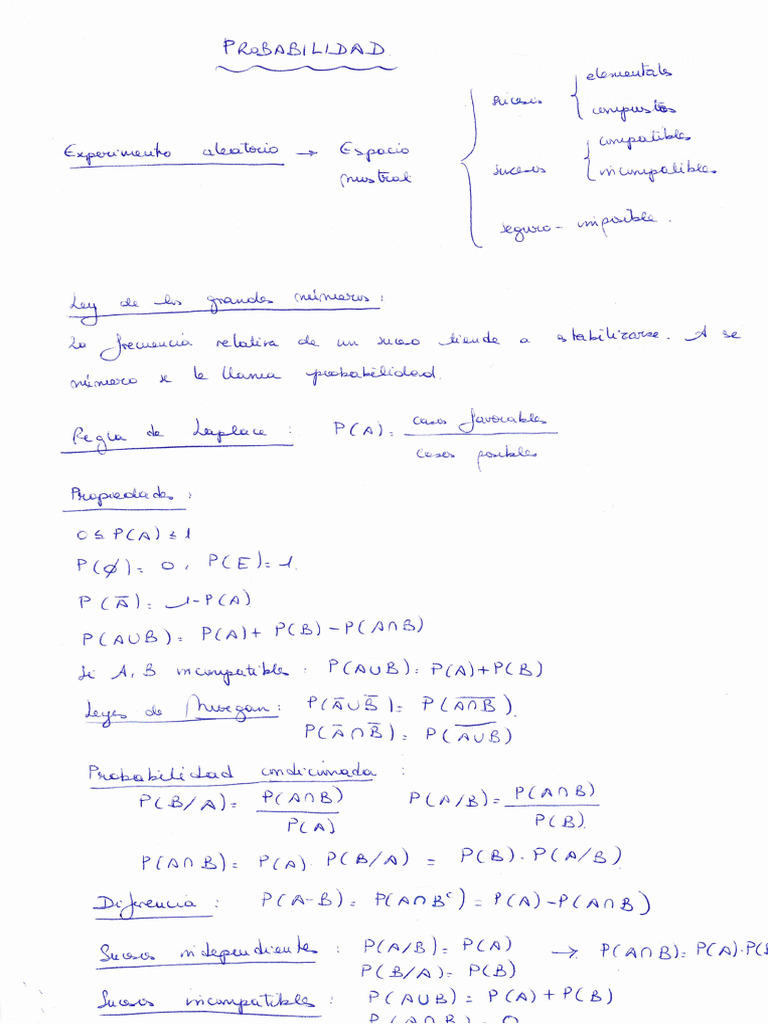 PROBABILIDAD
Experimento aleatorio → Espacio mustral
sucesos { elementales compuestos
sucesos { compatibles incompatibles
seguro - imposible.
Ley de los grandes números:
La frecuencia relativa de un suceso tiende a estabilizarse. A se
número se le llama probabilidad.
Regla de Laplace: P(A) = casos favorables / casos posibles
Propiedades:
0 ≤ P(A) ≤ 1
P(∅) = 0, P(E) = 1.
P(A̅) = 1 - P(A)
P(A∪B) = P(A) + P(B) - P(A∩B)
Si A, B incompatibles: P(A∪B) = P(A) + P(B)
Leyes de Morgan: P(A̅∪B̅) = P(A̅∩̅B̅).
P(A̅∩B̅) = P(A̅∪̅B̅)
Probabilidad condicionada:
P(B/A) = P(A∩B) / P(A) P(A/B) = P(A∩B) / P(B).
P(A∩B) = P(A) · P(B/A) = P(B) · P(A/B)
Diferencia: P(A-B) = P(A∩Bᶜ) = P(A) - P(A∩B)
Sucesos independientes: P(A/B) = P(A) → P(A∩B) = P(A)·P(B
P(B/A) = P(B)
Sucesos incompatibles: P(A∪B) = P(A) + P(B)
P(A∩B) = 0